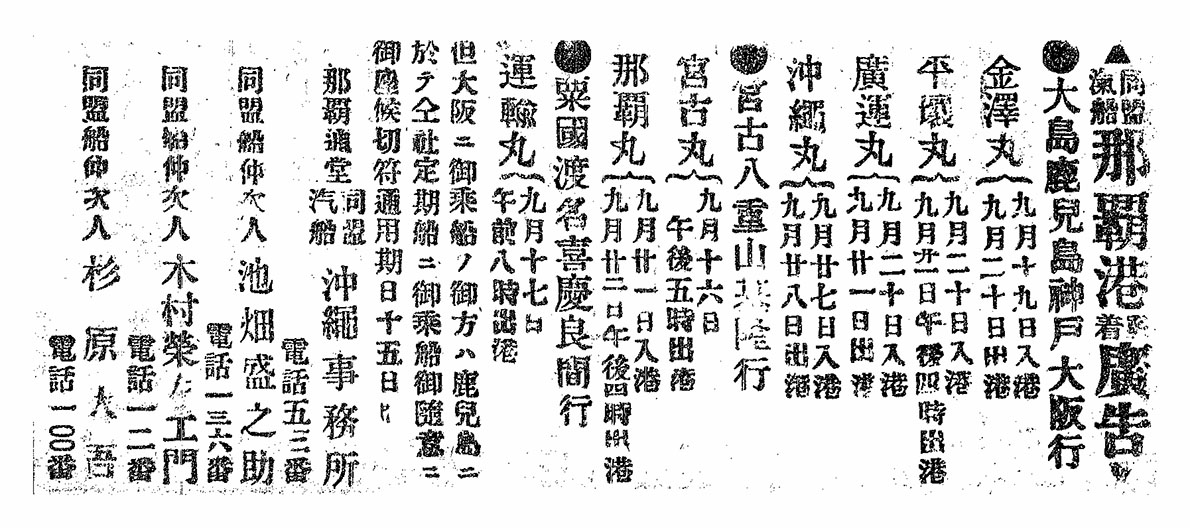 ▲同盟汽船那覇港発着廣告▼
●大島鹿兒島神戸大阪行
金澤丸 九月十九日入港
九月二十日出港
平壤丸 九月二十日入港
九月廿一日午後四時出港
廣運丸 九月二十日入港
九月廿一日出港
沖繩丸 九月廿七日入港
九月廿八日出港
●宮古八重山基隆行
宮古丸 九月十六日
午後五時出港
那覇丸 九月廿一日入港
九月廿二日午後四時出港
●粟國渡名喜慶良間行
運輸丸 九月十七日
午前八時出港
但大阪ニ御乘船ノ御方ハ鹿兒島ニ
於テ仝社定期船ニ御乘船御隨意ニ
御座候切符通用期日十五日
那覇通堂 同盟汽船 沖繩事務所
電話五三番
同盟船仲次人 池畑盛之助
電話一三六番
同盟船仲次人 木村榮左エ門
電話一二番
同盟船仲次人 杉原大吾
電話一〇〇番